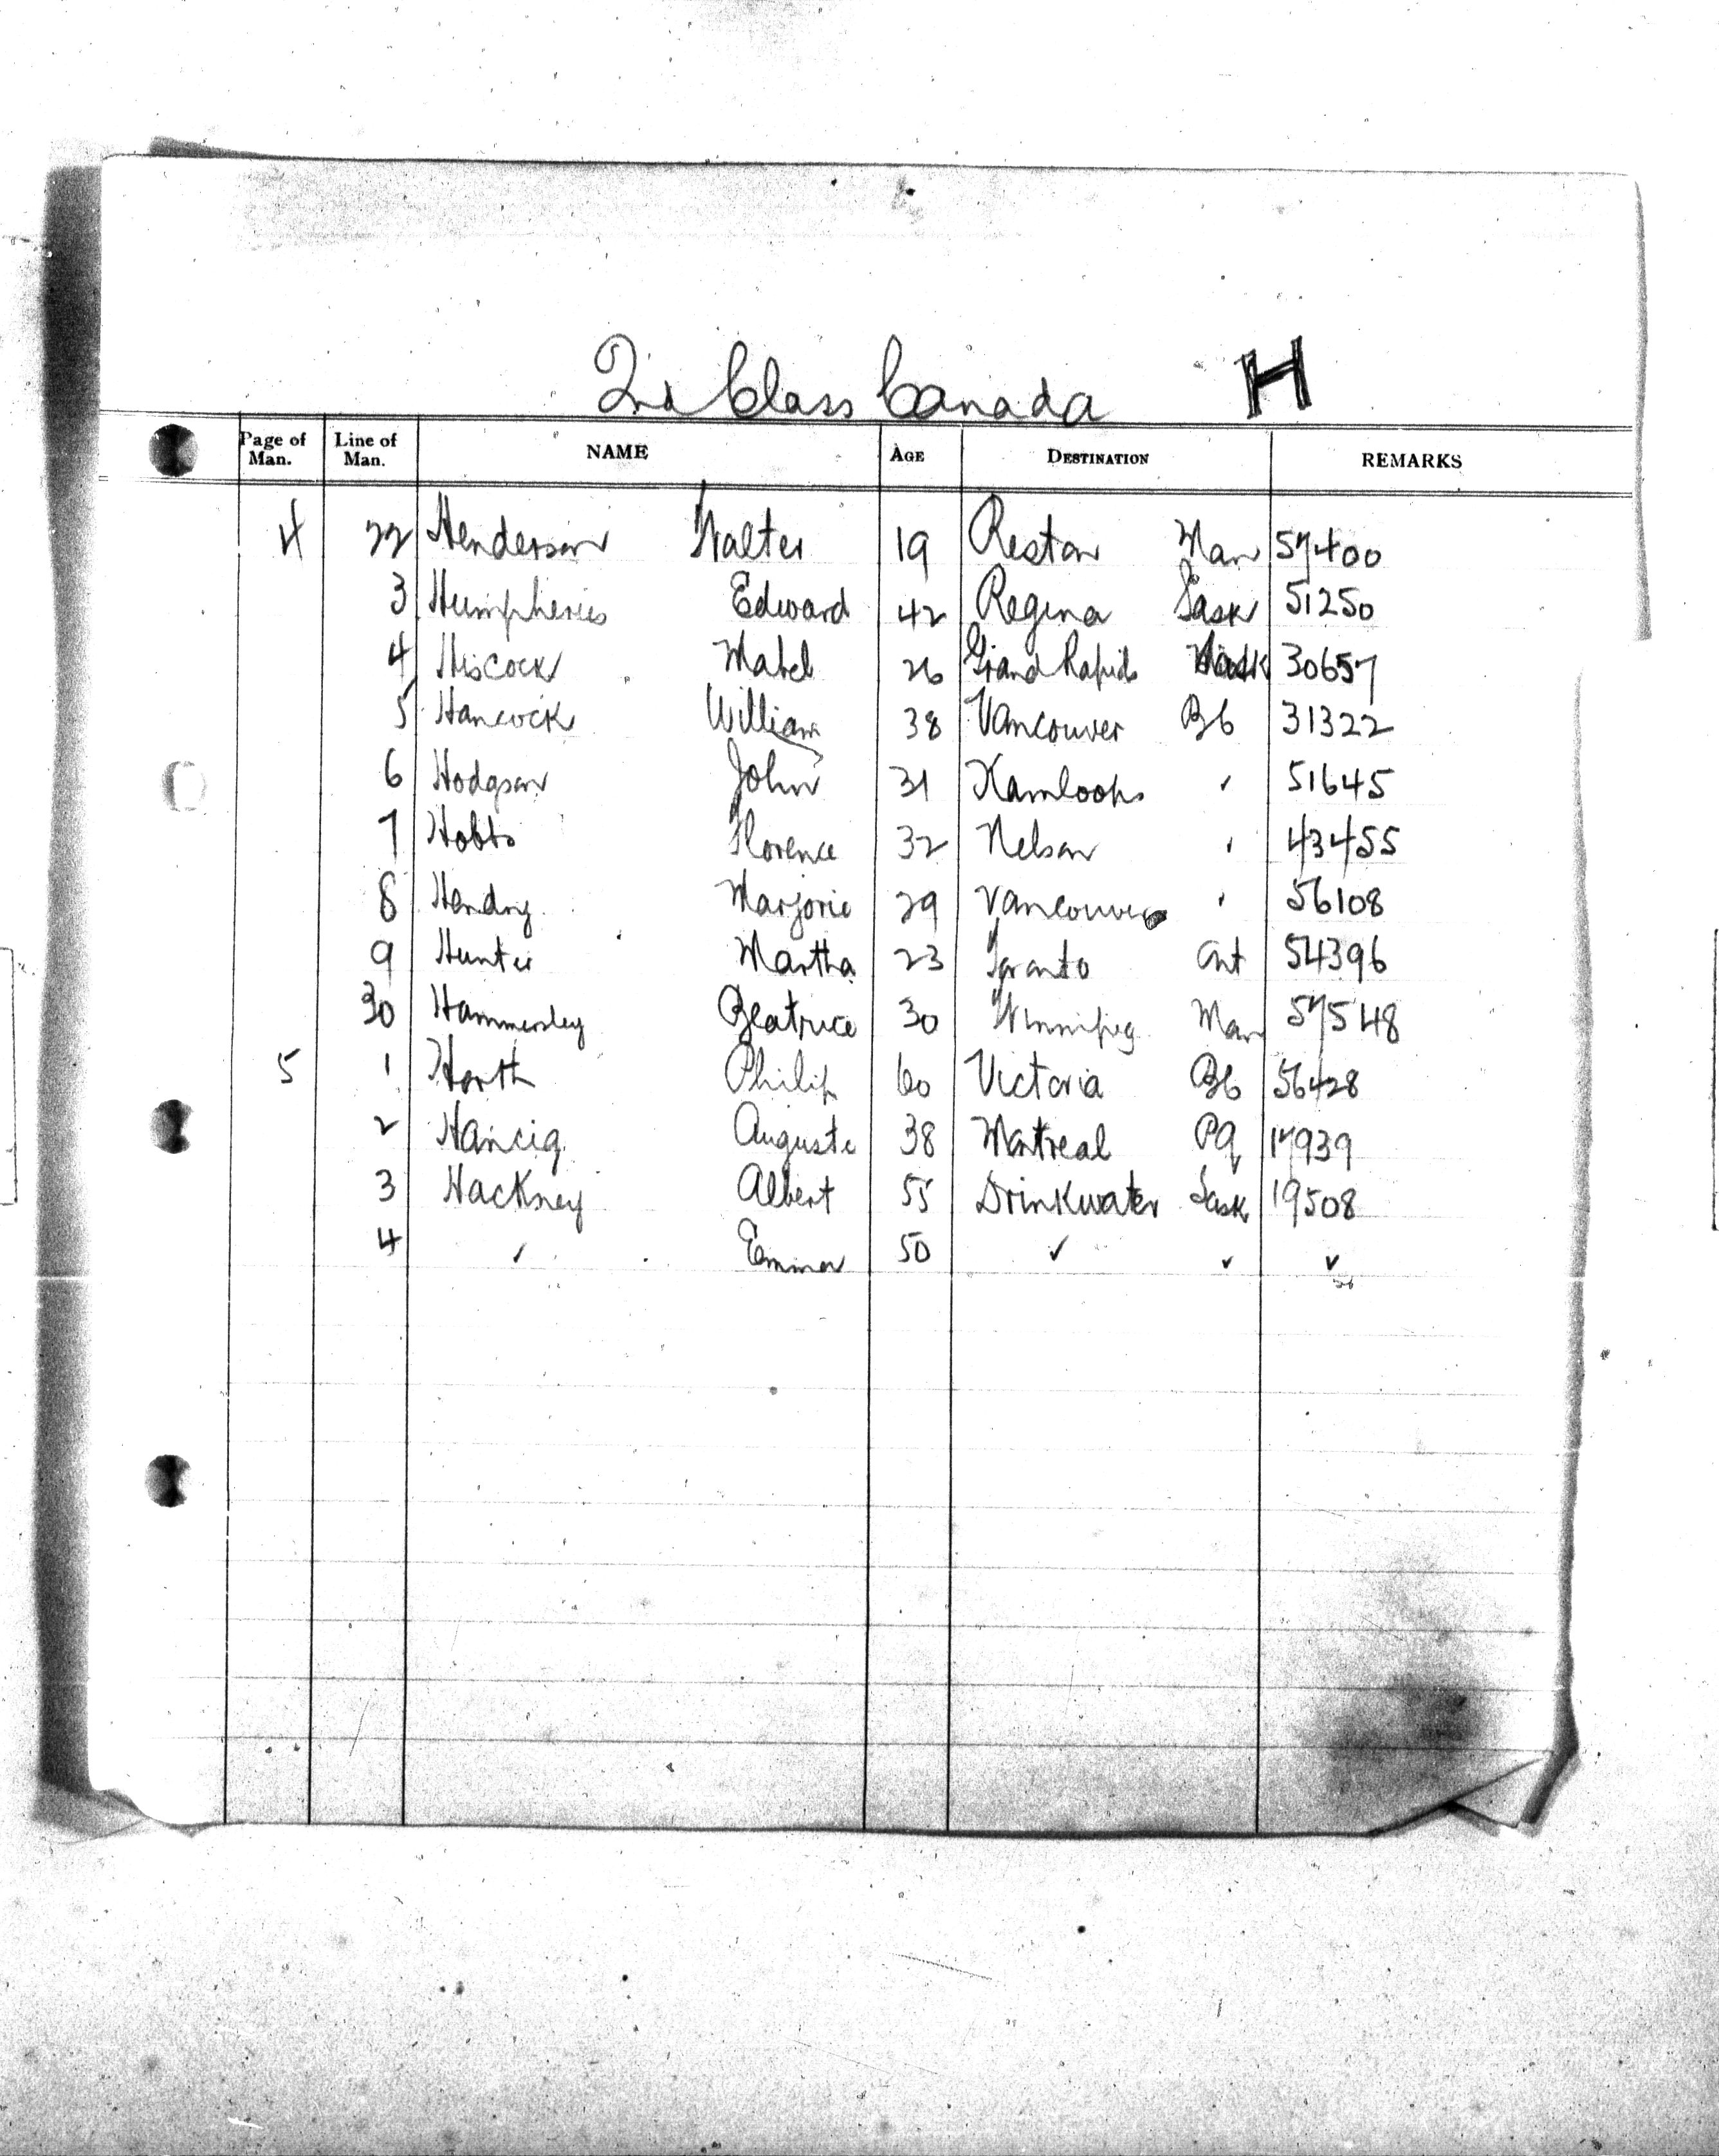 2nd Class Canada H
Page of Man. Line of Man. NAME AGE DESTINATION REMARKS
4 22 Henderson Walter 19 Reston Man 57400
3 Humpheries Edward 42 Regina Sask 51250
4 Hiscock Mabel 26 Grand Rapids 30657
5 Hancock William 38 Vancouver BC 31322
6 Hodgson John 31 Kamloops " 51645
7 Hobbs Florence 32 Nelson " 43455
8 Hendry Marjorie 29 Vancouver " 56108
9 Hunter Martha 23 Toronto Ont 54396
30 Hammersley Beatrice 30 Winnipeg Man 57548
5 1 Horth Philip 60 Victoria BC 56428
2 Auguste 38 Montreal PQ 17939
3 Hackney Albert 55 Drinkwater Sask 19508
4 ✓ Emma 50 ✓ ✓ ✓